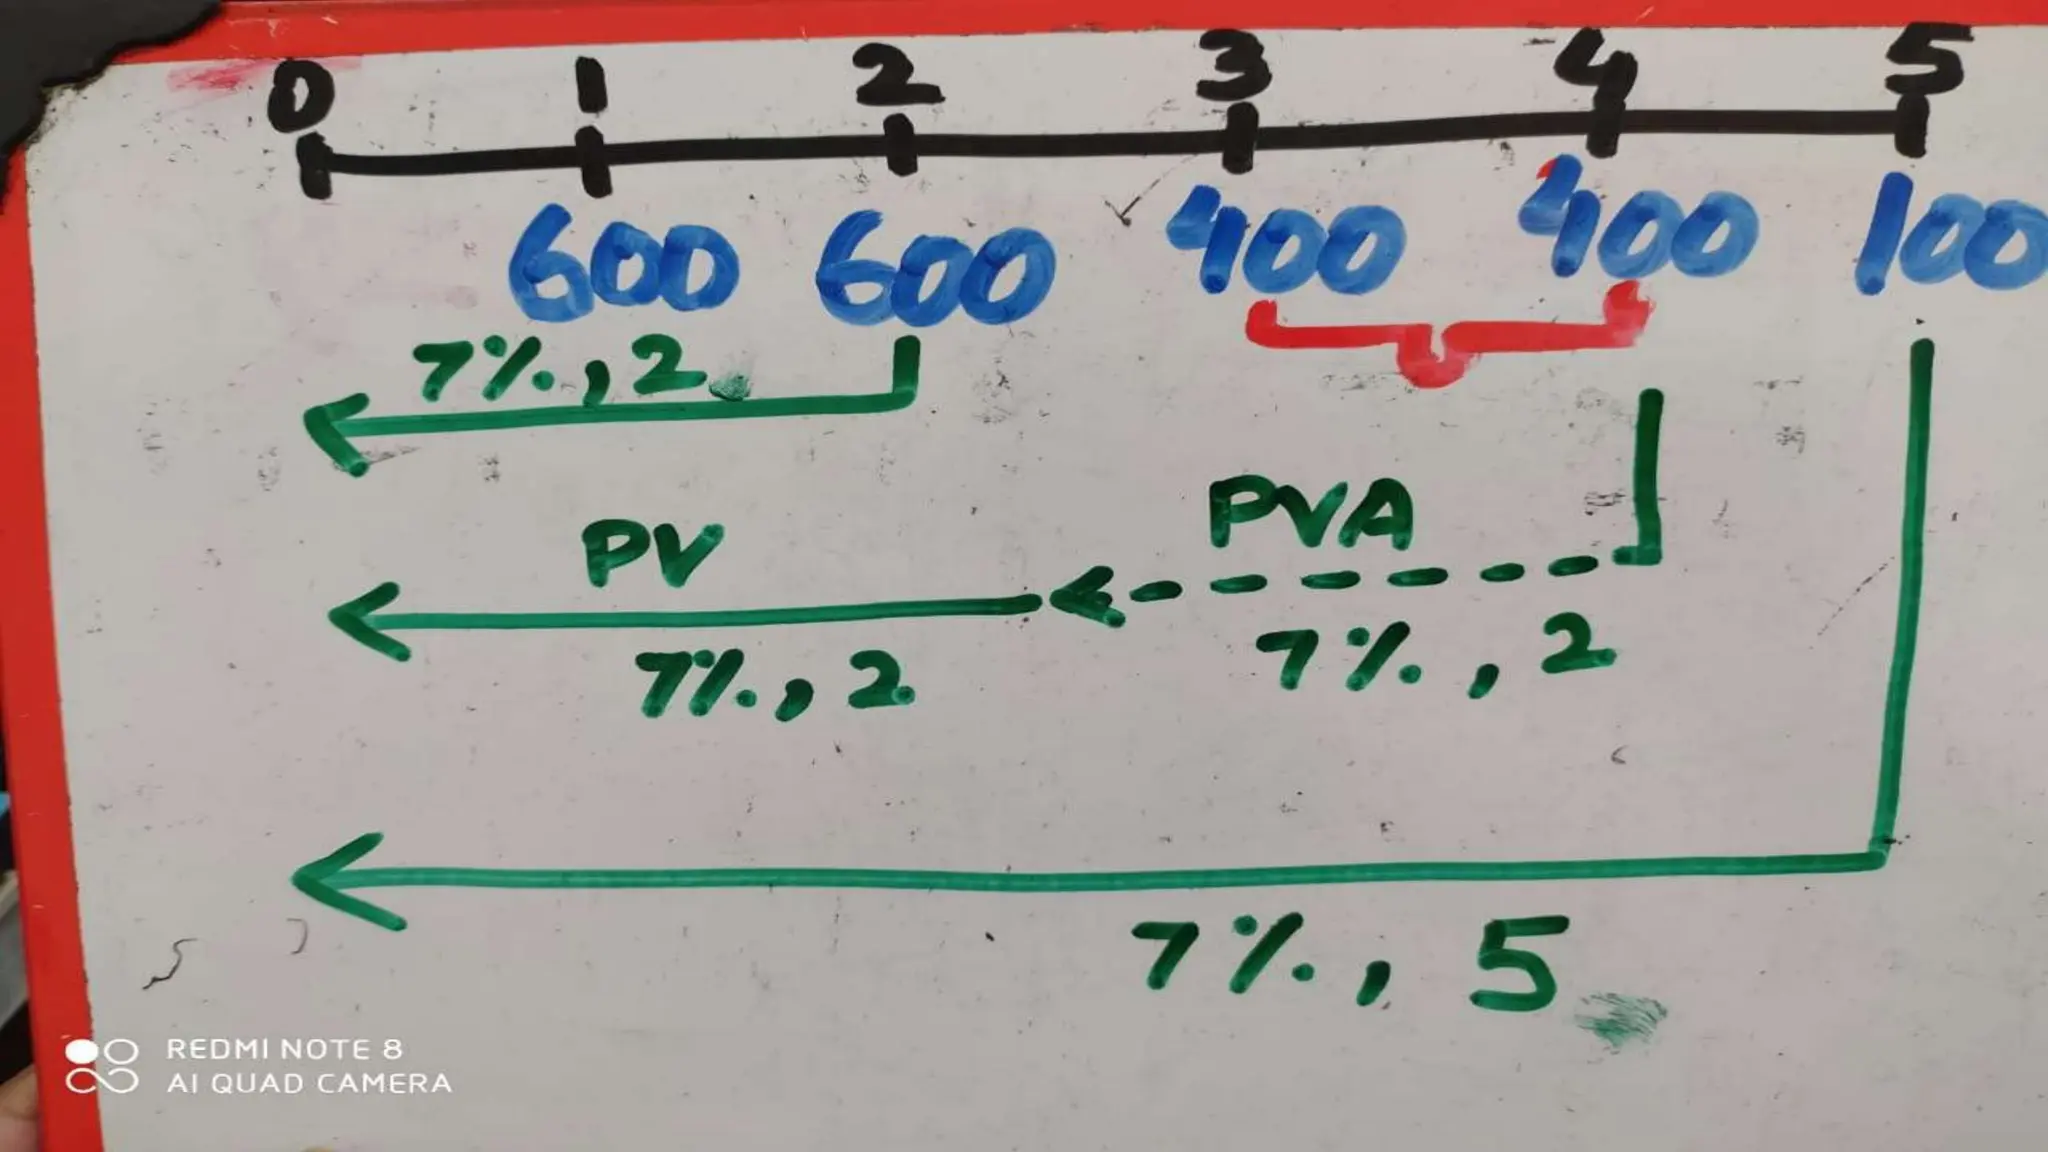 0 1 2 3 4 5
600 600 400 400 100
7%, 2
PV
PVA
7%, 2
7%, 2
7%, 5
REDMI NOTE 8
AI QUAD CAMERA